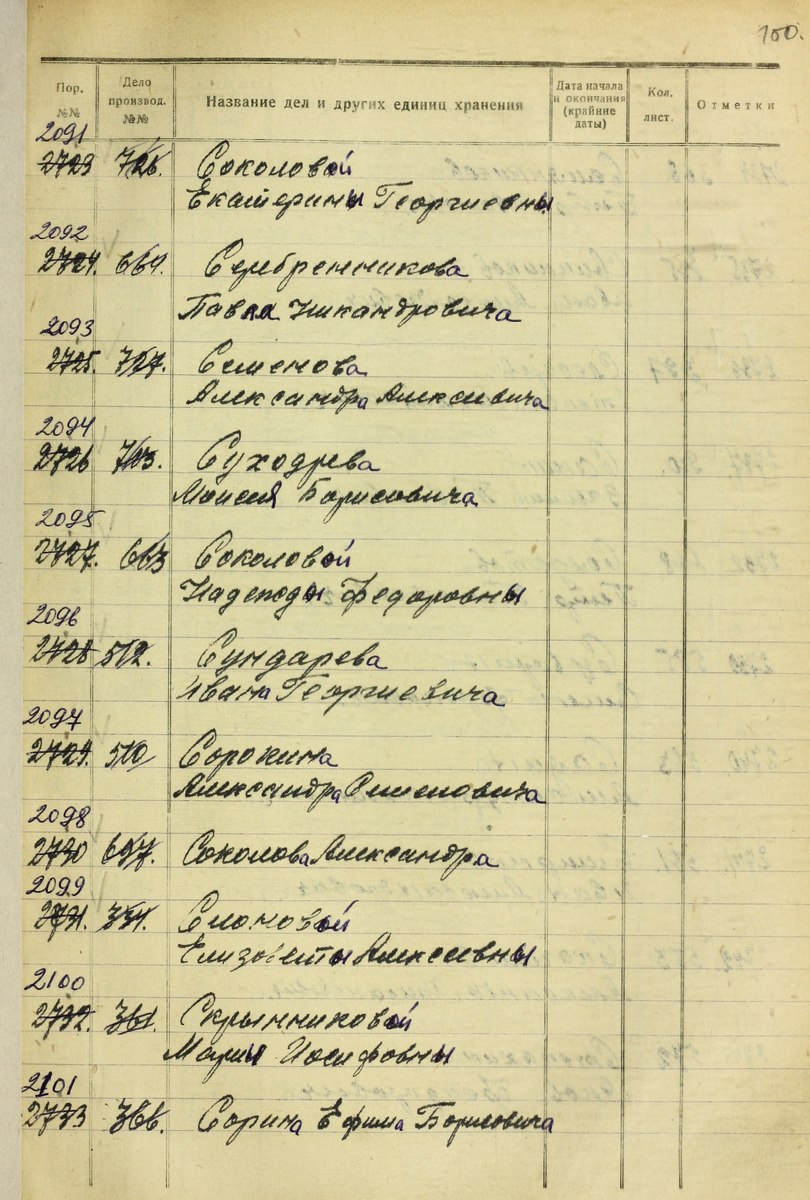 100.
Пор. №№ Дело производ. №№ Название дел и других единиц хранения Дата начала и окончания (крайние даты) Кол. лист. Отметки
2091
2723 726. Соколовой
Екатерины Георгиевны
2092
2724. 664. Серебренникова
Павла Никандровича
2093
2725. 727. Семенова
Александра Алексеевича
2094
2726 703. Суходрева
Моисея Борисовича
2095
2727. 663 Соколовой
Надежды Федоровны
2096
2728 512. Сундарева
Ивана Георгиевича
2097
2729. 510 Сорокина
Александра Семеновича
2098
2730 697. Соколова Александра
2099
2731. 334. Слоновой
Елизаветы Алексеевны
2100
2732. 361. Скрынниковой
Марии Иосифовны
2101
2733 366. Сорина Ефима Борисовича